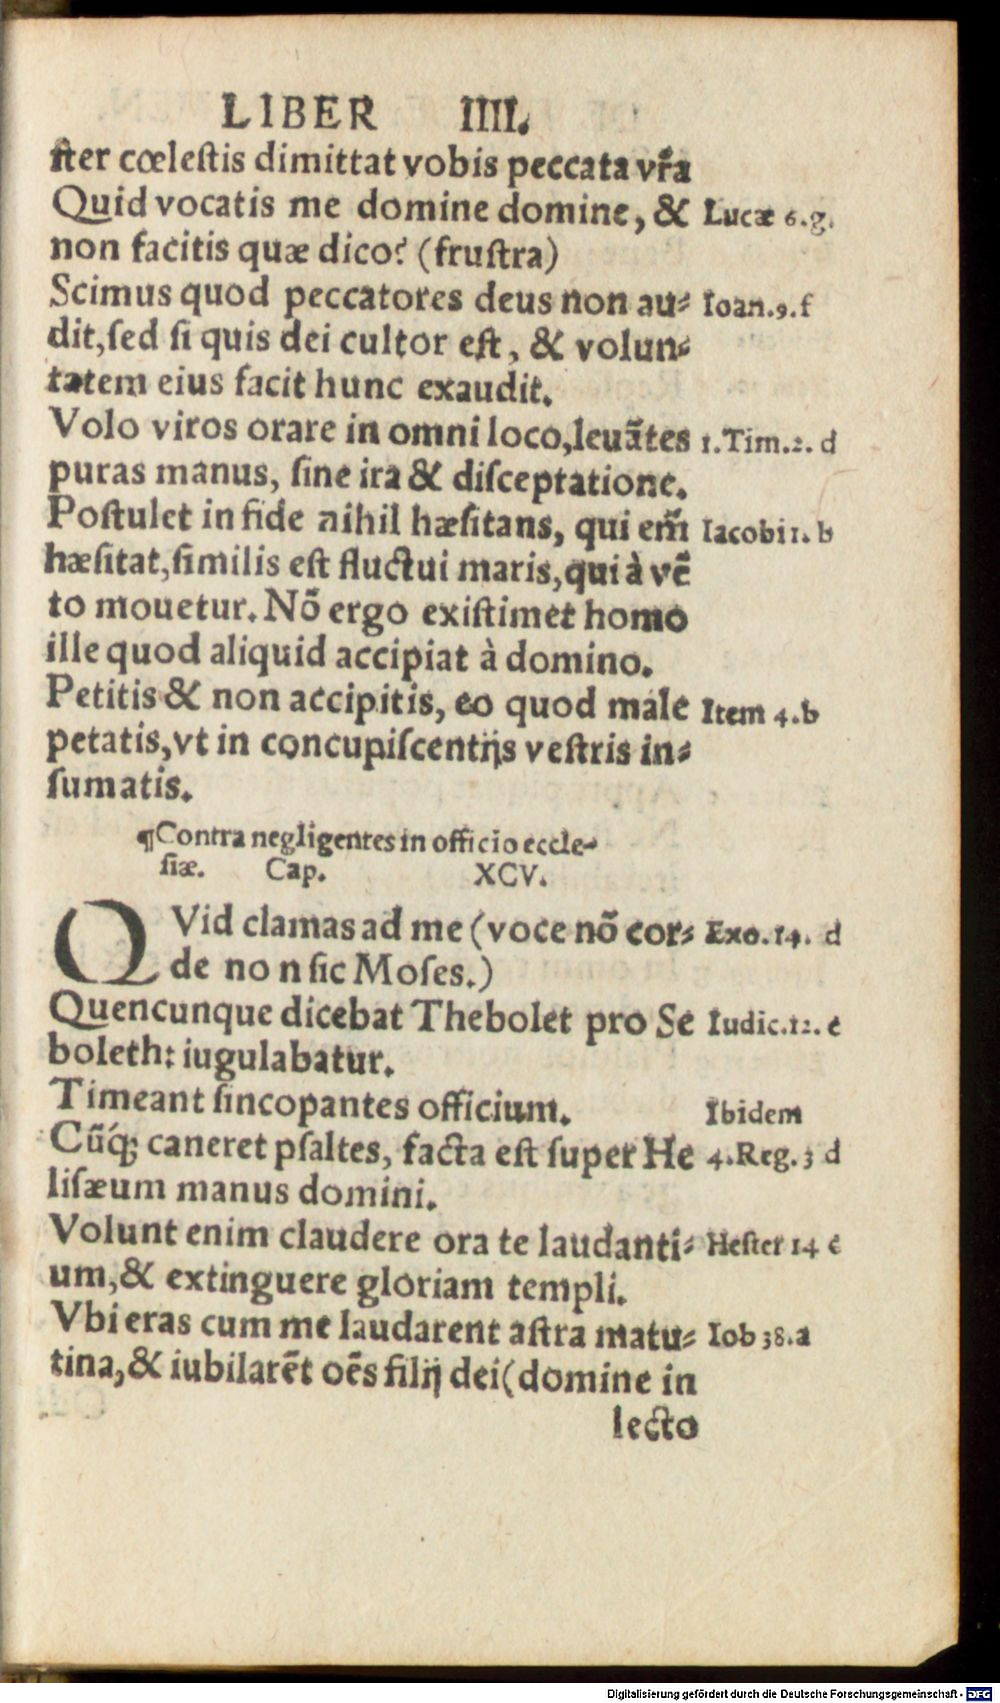 LIBER IIII.
ſter cœleſtis dimittat vobis peccata vr̃a
Quid vocatis me domine domine, & Lucæ 6.g.
non facitis quæ dico? (fruſtra)
Scimus quod peccatores deus non au⸗ Ioan.9.f
dit,ſed ſi quis dei cultor eſt, & volun⸗
tatem eius facit hunc exaudit.
Volo viros orare in omni loco,leuãtes 1.Tim.2. d
puras manus, ſine ira & diſceptatione.
Poſtulet in fide nihil hæſitans, qui em̃ Iacobi 1. b
hæſitat,ſimilis eſt fluctui maris,qui à vẽ
to mouetur. Nõ ergo exiſtimet homo
ille quod aliquid accipiat à domino.
Petitis & non accipitis, eo quod male Item 4.b
petatis,vt in concupiſcentijs veſtris in⸗
ſumatis.
¶Contra negligentes in officio eccle⸗
ſiæ. Cap. XCV.
QVid clamas ad me (voce nõ cor⸗ Exo.14. d
de no n ſic Moſes.)
Quencunque dicebat Thebolet pro Se Iudic.12. e
boleth: iugulabatur.
Timeant ſincopantes officium. Ibidem
Cũq́; caneret pſaltes, facta eſt ſuper He 4.Reg.3 d
liſæum manus domini.
Volunt enim claudere ora te laudanti⸗ Heſter 14 c
um,& extinguere gloriam templi.
Vbi eras cum me laudarent aſtra matu⸗ Iob 38.a
tina,& iubilarẽt oẽs filij dei(domine in
lecto
Digitalisierung gefördert durch die Deutsche Forschungsgemeinschaft - DFG